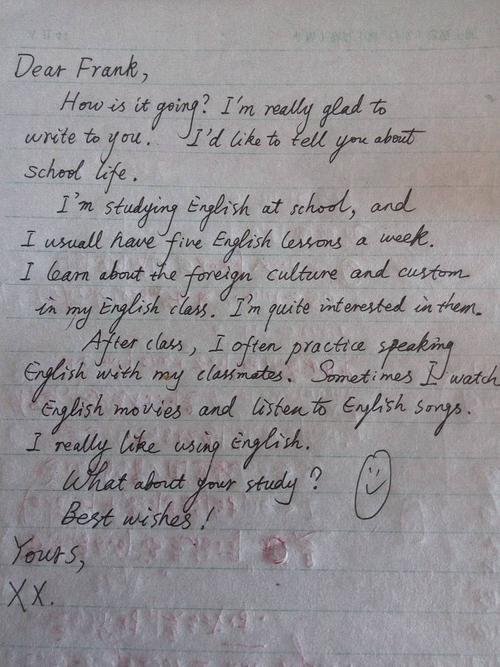 Dear Frank,
How is it going? I'm really glad to
write to you. I'd like to tell you about
school life.
I'm studying English at school, and
I usuall have five English lessons a week.
I learn about the foreign culture and custom
in my English class. I'm quite interested in them.
After class, I often practice speaking
English with my classmates. Sometimes I watch
English movies and listen to English songs.
I really like using English.
What about your study?
Best wishes!
Yours,
XX.